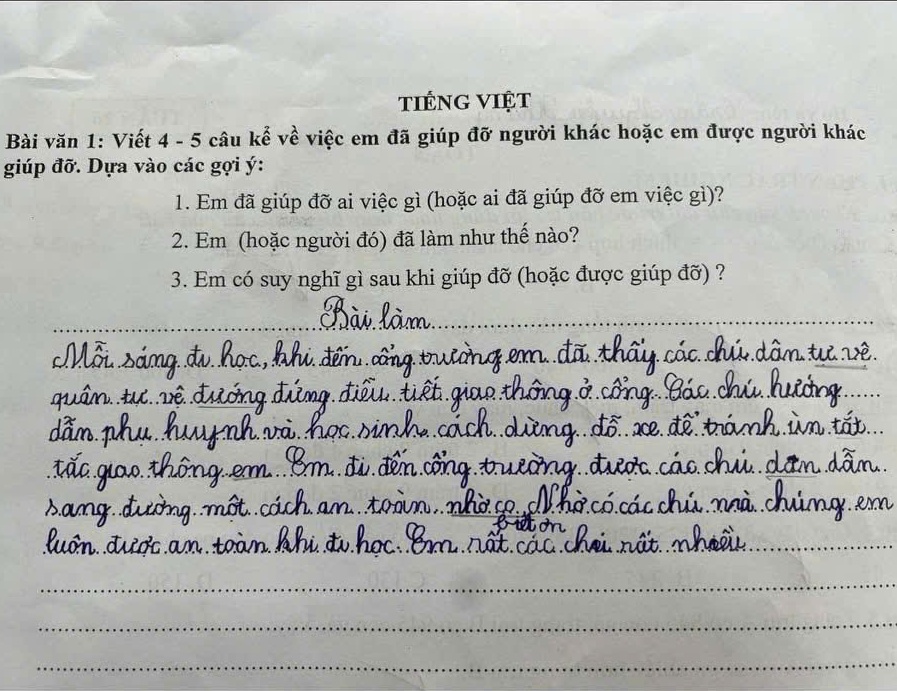 TIẾNG VIỆT
Bài văn 1: Viết 4 - 5 câu kể về việc em đã giúp đỡ người khác hoặc em được người khác
giúp đỡ. Dựa vào các gợi ý:
1. Em đã giúp đỡ ai việc gì (hoặc ai đã giúp đỡ em việc gì)?
2. Em (hoặc người đó) đã làm như thế nào?
3. Em có suy nghĩ gì sau khi giúp đỡ (hoặc được giúp đỡ) ?
Bài làm
Mỗi sáng đi học, khi đến cổng trường em đã thấy các chú dân tự vệ
quân tự vệ đướng đứng điều tiết giao thông ở cổng. Các chú hướng
dẫn phụ huynh và học sinh cách dừng đỗ xe để tránh ùn tắt
tắc giao thông em Em đi đến cổng trường được các chú dẫn
sang đường một cách an toàn, nhờ có Nhờ có các chú mà chúng em
biết ơn
luôn được an toàn khi đi học. Em rất các chú rất nhiều